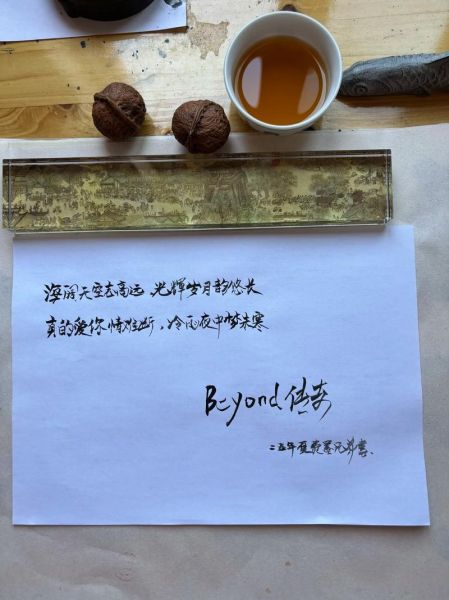 海阔天空志高远 光辉岁月韵悠长
真的爱你情难断，冷雨夜中梦未寒
Beyond传奇
二五年夏